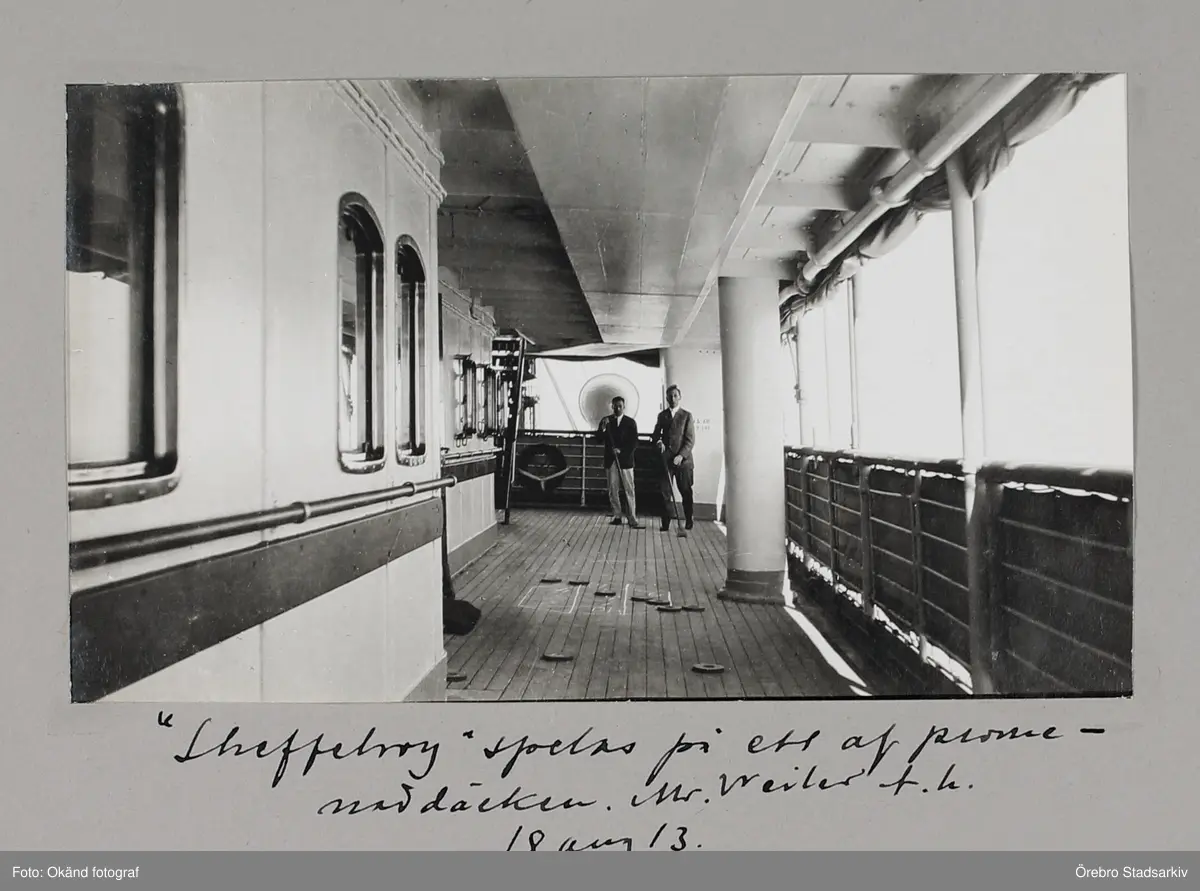 "Sheffelwoy" spelas på ett af prome-
naddäcken. Mr. Weiler t.h.
18 aug 13.
Foto: Okänd fotograf
Örebro Stadsarkiv